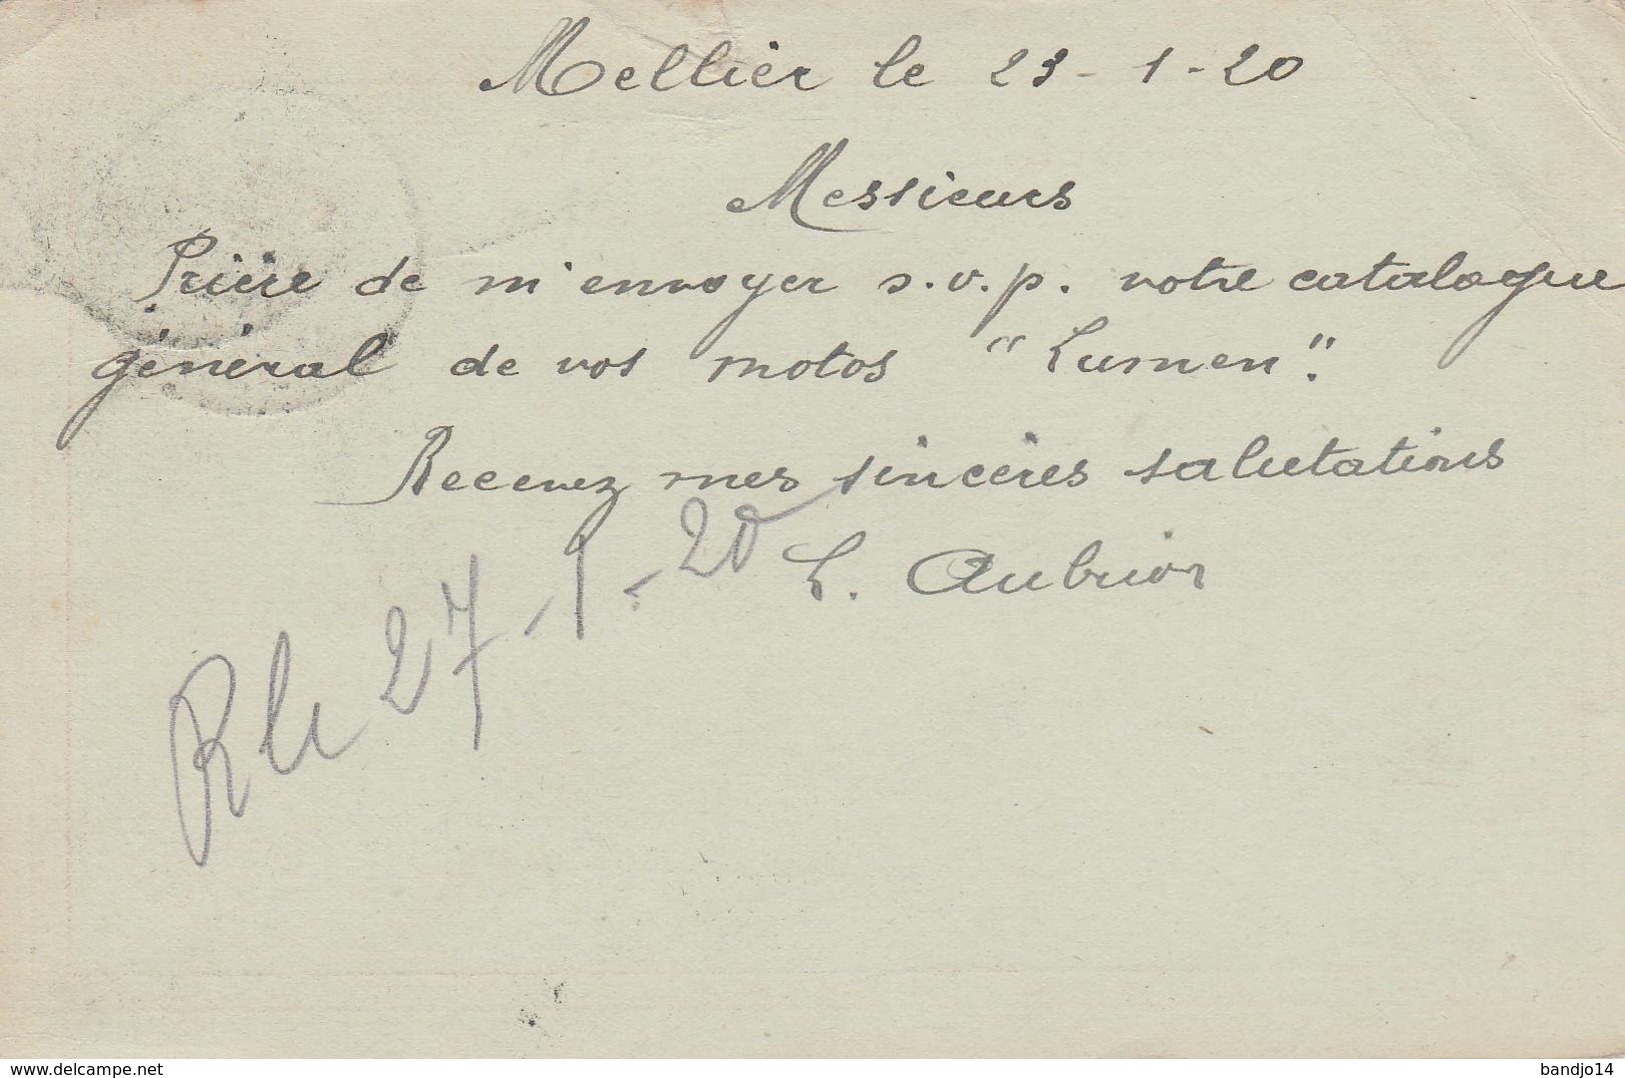 Mellier le 23-1-20
Messieurs
Prière de m'envoyer s.v.p. votre catalogue
général de vos motos "Lumen".
Recevez mes sincères salutations
L. Aubrion
27-1-20
delcampe.net
bandjo14